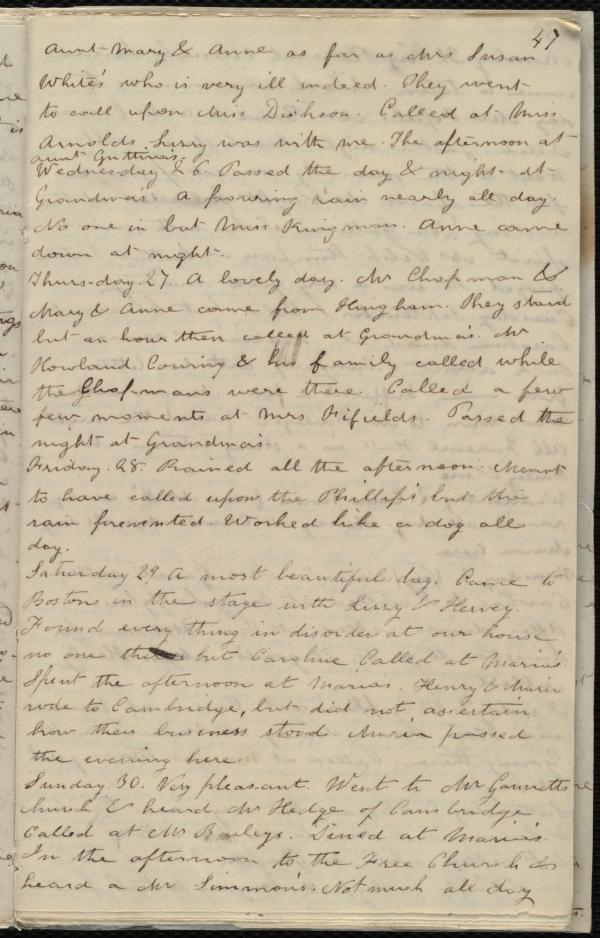 47
Aunt Mary & Anne as far as Mrs Susan
White's who is very ill indeed. They went
to call upon Miss Dickson. Called at Miss
Arnolds. Lizzy was with me. The afternoon at
aunt
Wednesday 26. Passed the day & night at
Grandma's. A pouring rain nearly all day.
No one in but Miss Kingman. Anne came
down at night.
Thursday 27. A lovely day. Mr Chapman &
Mary & Anne came from Hingham. They staid
but an hour then called at Grandma's. Mr
Howland & his family called while
the Chapmans were there. Called a few
few moments at Mrs Fifields. Passed the
night at Grandma's.
Friday. 28. Rained all the afternoon. Meant
to have called upon the Phillips' but the
rain prevented. Worked like a dog all
day.
Saturday 29 A most beautiful day. Came to
Boston in the stage with Lizzy & Hervey.
Found every thing in disorder at our house
no one there but Caroline. Called at Maria's.
Spent the afternoon at Maria's. Henry & Maria
rode to Cambridge, but did not ascertain
how their business stood. Maria passed
the evening here.
Sunday. 30. Very pleasant. Went to Mr Gannetts
church & heard Mr Hedge of Cambridge
Called at Mr Baileys. Dined at Maria's.
In the afternoon to the Free Church &
heard a Mr Simmons. Not much all day